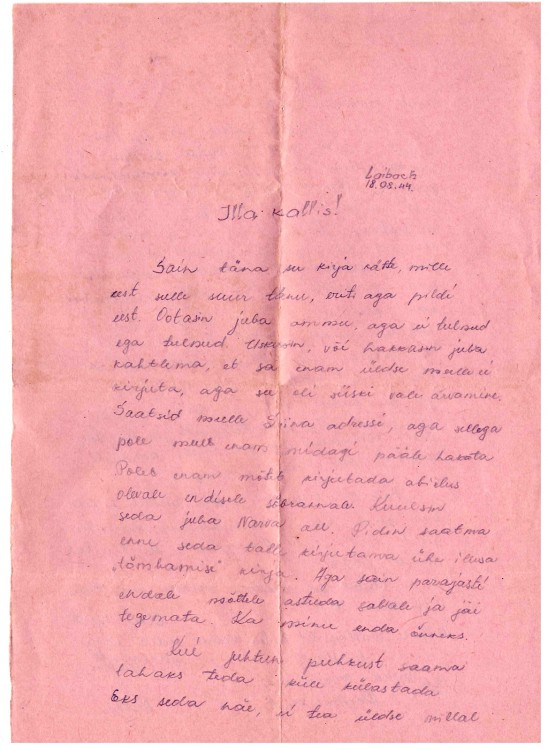 Laibach
18.08.44.
Illa kallis!
Sain täna su kirja kätte, mille
eest sulle suur tänu, eriti aga pildi
eest. Ootasin juba ammu, aga ei tulnud
ega tulnud. Uskusin, või hakkasin juba
kahtlema, et sa enam üldse mulle ei
kirjuta, aga see oli siiski vale arvamine.
Saatsid mulle aadressi, aga sellega
pole mull enam midagi pääle hakata
Poleb enam mõtet kirjutada abielus
olevale endisele sõbrannale. Kuulsin
seda juba Narva all. Pidin saatma
enne seda talle kirjutama ühe ilusa
"tõmbamise" kirja. Aga sain parajasti
endale mõttele astuda sabale ja jäi
tegemata. Ka minu enda õnneks.
Kui juhtun puhkust saama
tahaks teda küll külastada
Eks seda näe, ei tea üldse millal